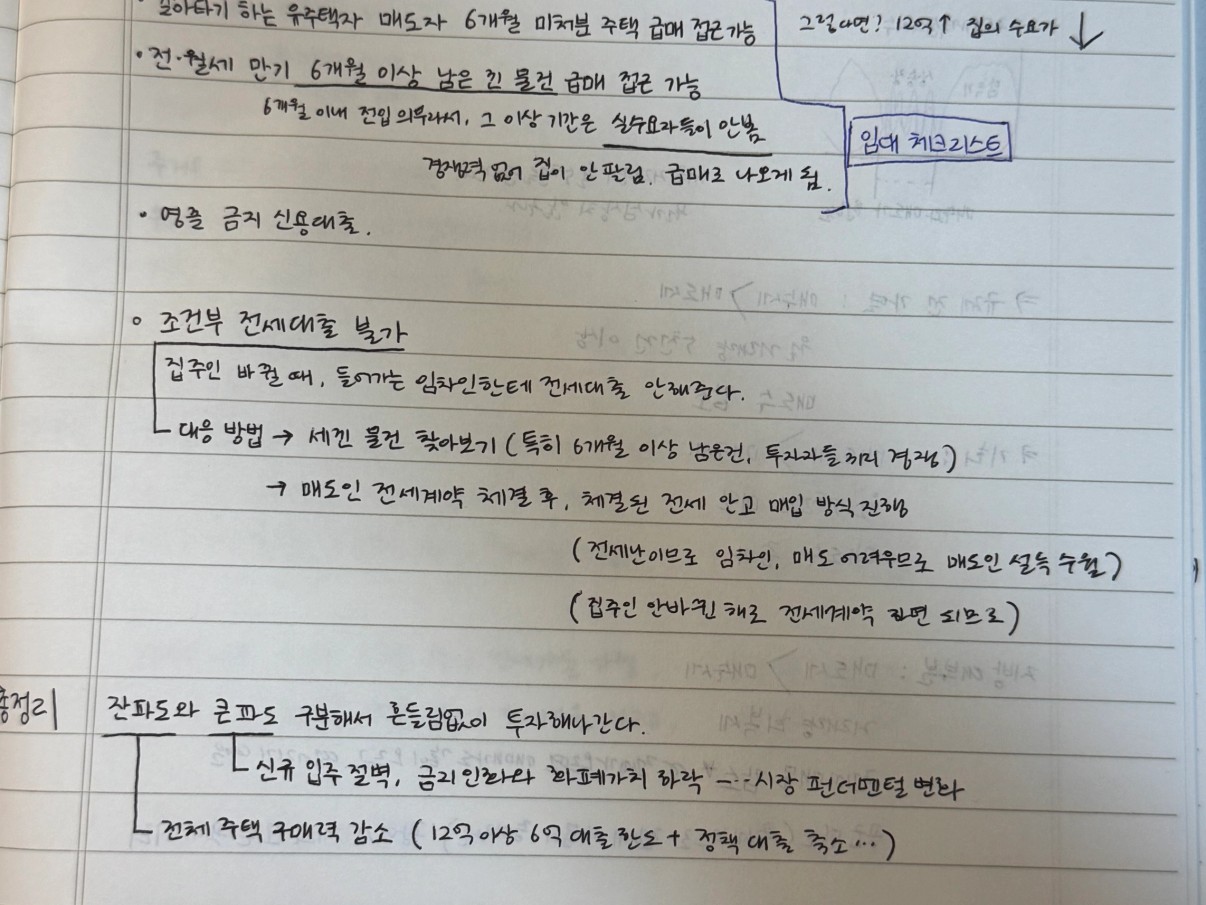 갈아타기 하는 유주택자 매도자 6개월 미처분 주택 급매 접근 가능
그렇다면? 12억↑ 집의 수요가 ↓
• 전·월세 만기 6개월 이상 남은 긴 물건 급매 접근 가능
6개월 이내 전입 의무라서, 그 이상 기간은 실수요자들이 안봄
경쟁력 없어 집이 안 팔림. 급매로 나오게 됨.
임대 체크리스트
• 영끌 금지 신용대출.
• 조건부 전세대출 불가
집주인 바뀔 때, 들어가는 임차인한테 전세대출 안해준다.
대응 방법 → 세낀 물건 찾아보기 (특히 6개월 이상 남은건, 투자자들끼리 경쟁)
→ 매도인 전세계약 체결 후, 체결된 전세 안고 매입 방식 진행
(전세난이므로 임차인, 매도 어려우므로 매도인 설득 수월)
(집주인 안바뀐 채로 전세계약 하면 되므로)
총정리
잔파도와 큰 파도 구분해서 흔들림없이 투자해나간다.
신규 입주 절벽, 금리 인하와 화폐가치 하락 ---- 시장 펀더멘털 변화
전체 주택 구매력 감소 (12억 이상 6억 대출 한도 + 정책 대출 축소…)